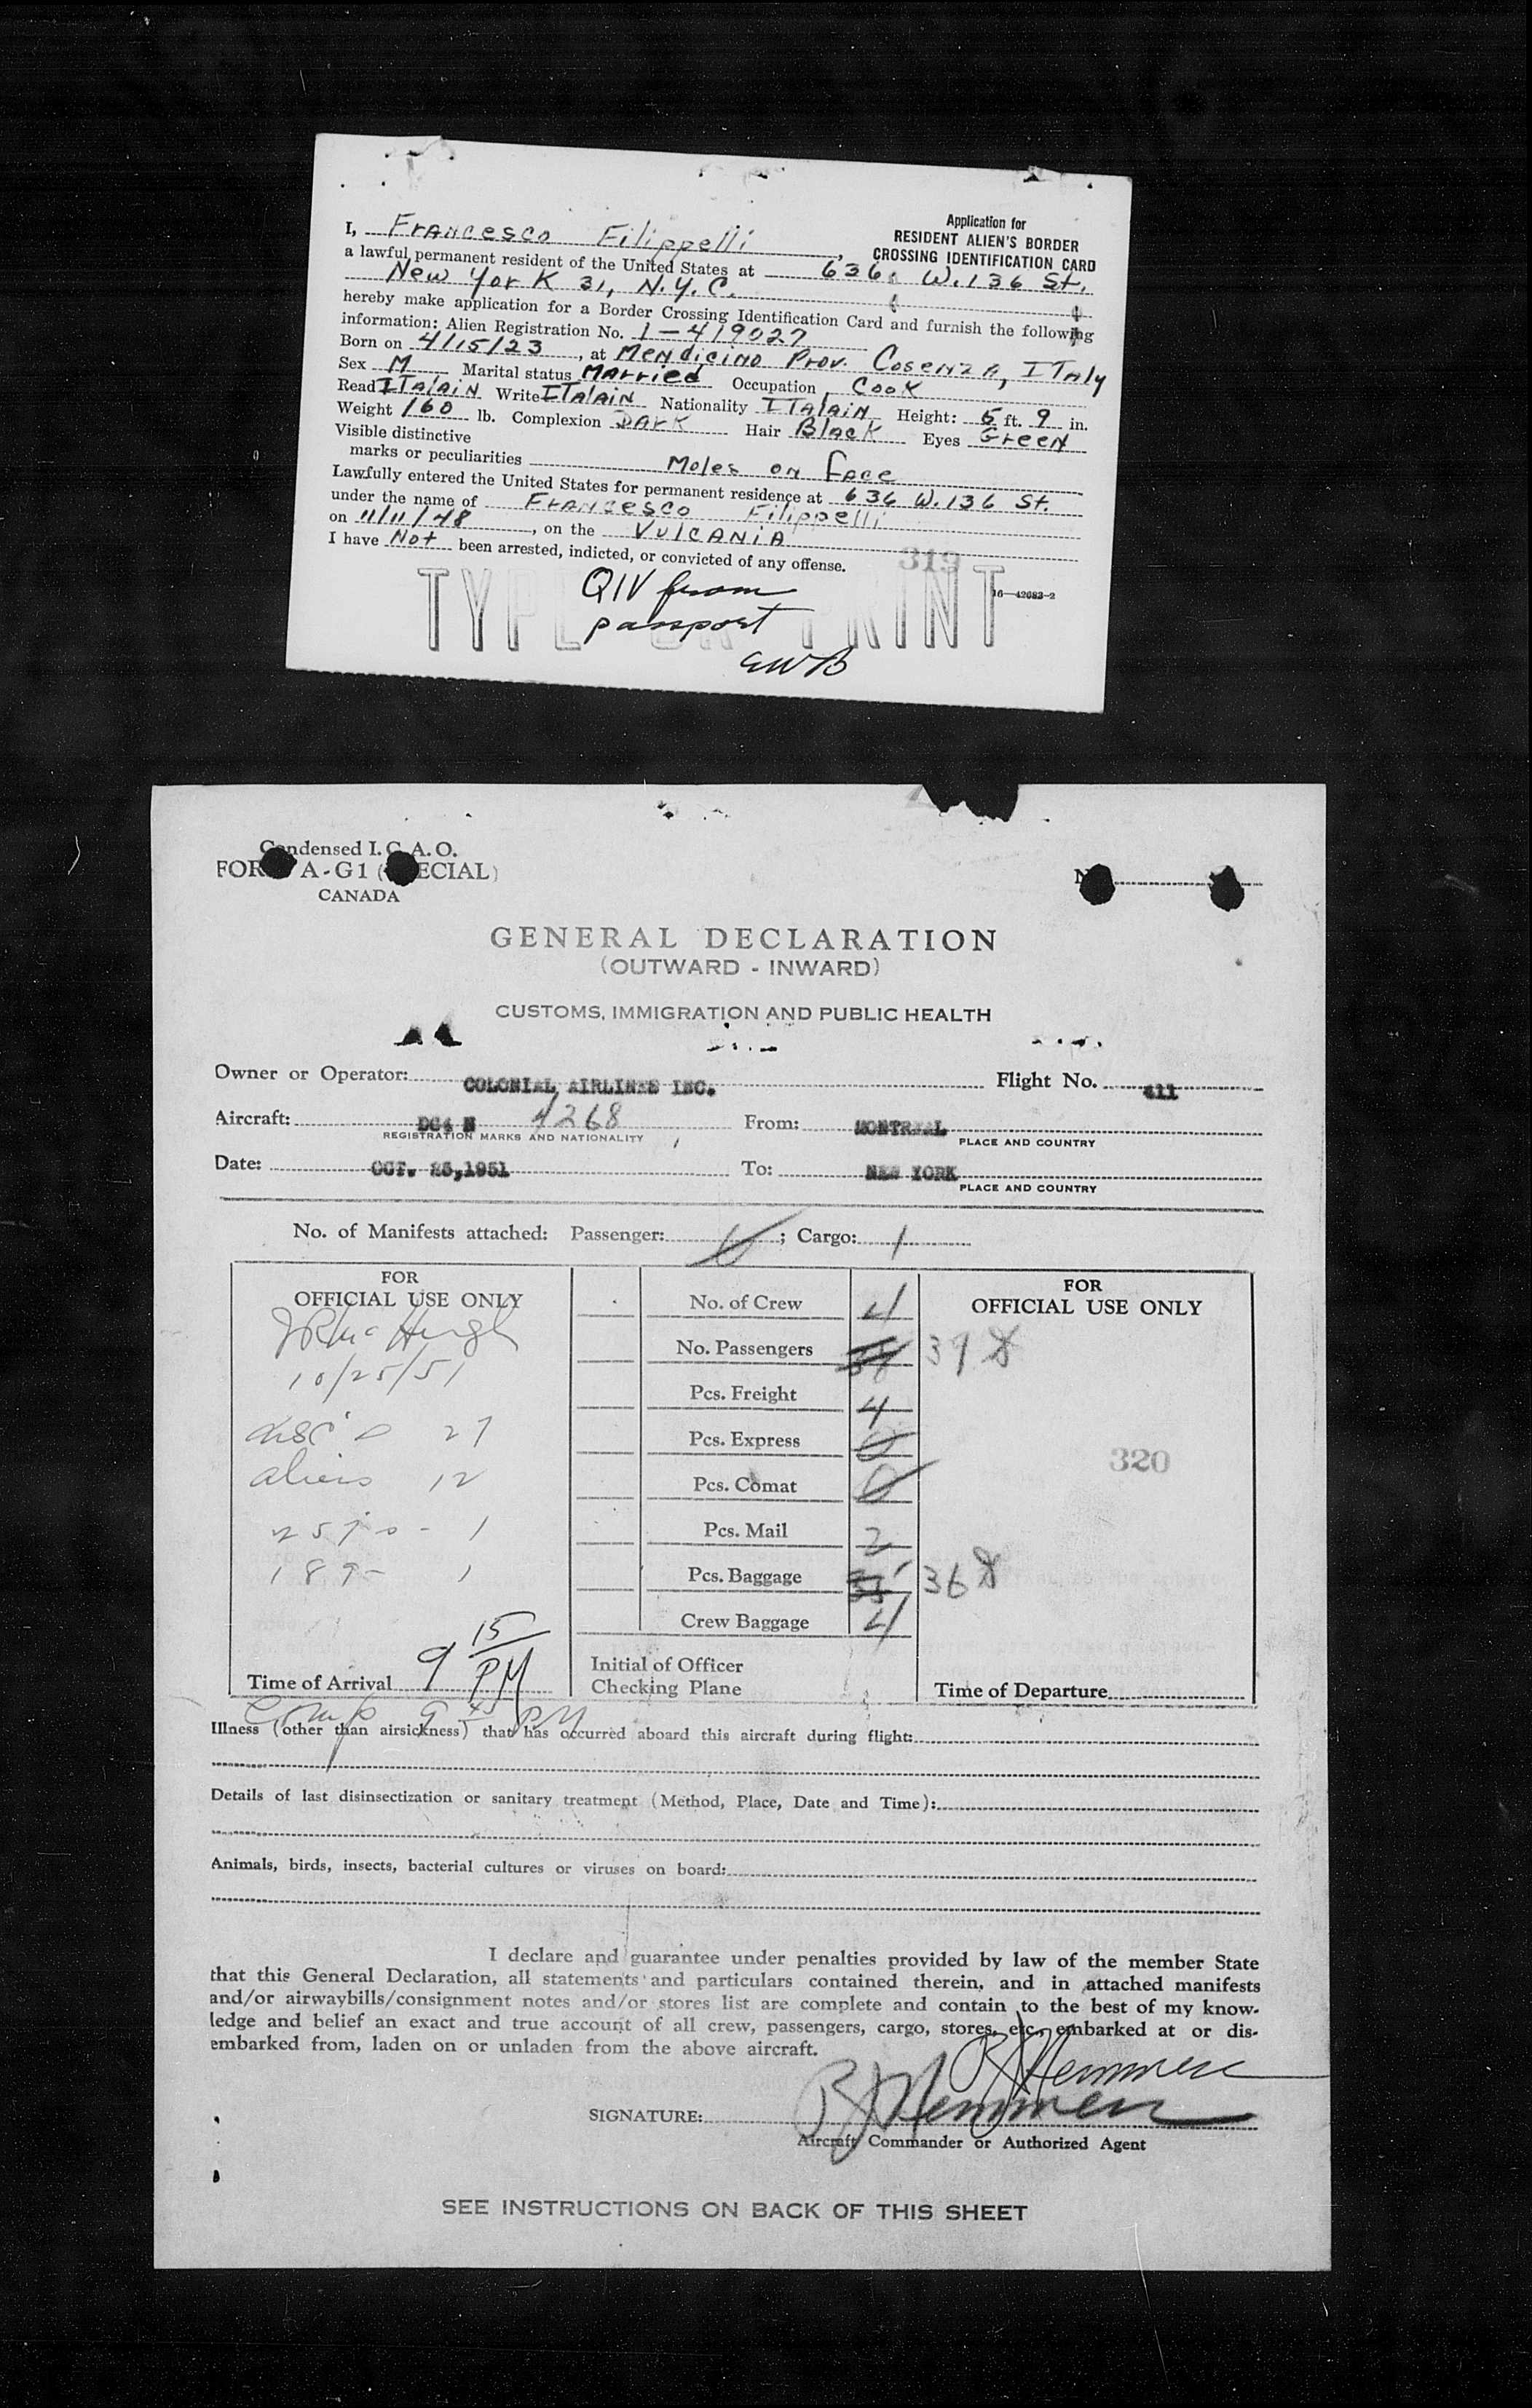 Application for
RESIDENT ALIEN'S BORDER
CROSSING IDENTIFICATION CARD
I, Francesco Filippelli,
a lawful permanent resident of the United States at 636 W. 136 St.
New York 31, N.Y.C.
hereby make application for a Border Crossing Identification Card and furnish the following
information: Alien Registration No. 1-419027
Born on 4/15/23, at Mendicino Prov. Cosenza, ITaly
Sex M Marital status Married Occupation Cook
Read ITalaiN Write ITalaiN Nationality ITalaiN Height: 5 ft. 9 in.
Weight 160 lb. Complexion Dark Hair Black Eyes Green
Visible distinctive
marks or peculiarities Moles on face
Lawfully entered the United States for permanent residence at 636 W. 136 St.
under the name of Francesco Filippelli
on 11/11/48, on the VulcaniA
I have Not been arrested, indicted, or convicted of any offense.
319
16—42682-2
TYPE OR PRINT
QIV from
passport
EWB
Condensed I.C.A.O.
FOR A-G1 (SPECIAL)
CANADA
GENERAL DECLARATION
(OUTWARD - INWARD)
CUSTOMS, IMMIGRATION AND PUBLIC HEALTH
Owner or Operator: COLONIAL AIRLINES INC. Flight No. 411
Aircraft: DC4 N 1268 From: MONTREAL
REGISTRATION MARKS AND NATIONALITY PLACE AND COUNTRY
Date: OCT. 25,1951 To: NEW YORK
PLACE AND COUNTRY
No. of Manifests attached: Passenger: 0; Cargo: 1
FOR
OFFICIAL USE ONLY
10/25/51
27
aliens 12
257 - 1
189 - 1
Time of Arrival 9 15 PM
No. of Crew 4
No. Passengers 39
Pcs. Freight 4
Pcs. Express 0
Pcs. Comat 0
Pcs. Mail 2
Pcs. Baggage 36
Crew Baggage 4
Initial of Officer
Checking Plane
FOR
OFFICIAL USE ONLY
320
Time of Departure
Comp 9 45 PM
Illness (other than airsickness) that has occurred aboard this aircraft during flight:
Details of last disinsectization or sanitary treatment (Method, Place, Date and Time):
Animals, birds, insects, bacterial cultures or viruses on board:
I declare and guarantee under penalties provided by law of the member State
that this General Declaration, all statements and particulars contained therein, and in attached manifests
and/or airwaybills/consignment notes and/or stores list are complete and contain to the best of my know-
ledge and belief an exact and true account of all crew, passengers, cargo, stores, etc., embarked at or dis-
embarked from, laden on or unladen from the above aircraft.
SIGNATURE:
Aircraft Commander or Authorized Agent
SEE INSTRUCTIONS ON BACK OF THIS SHEET